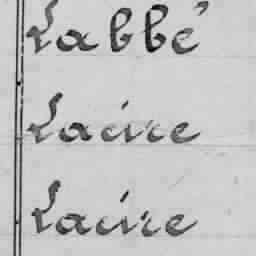 Labbé
Lacire
Lacire